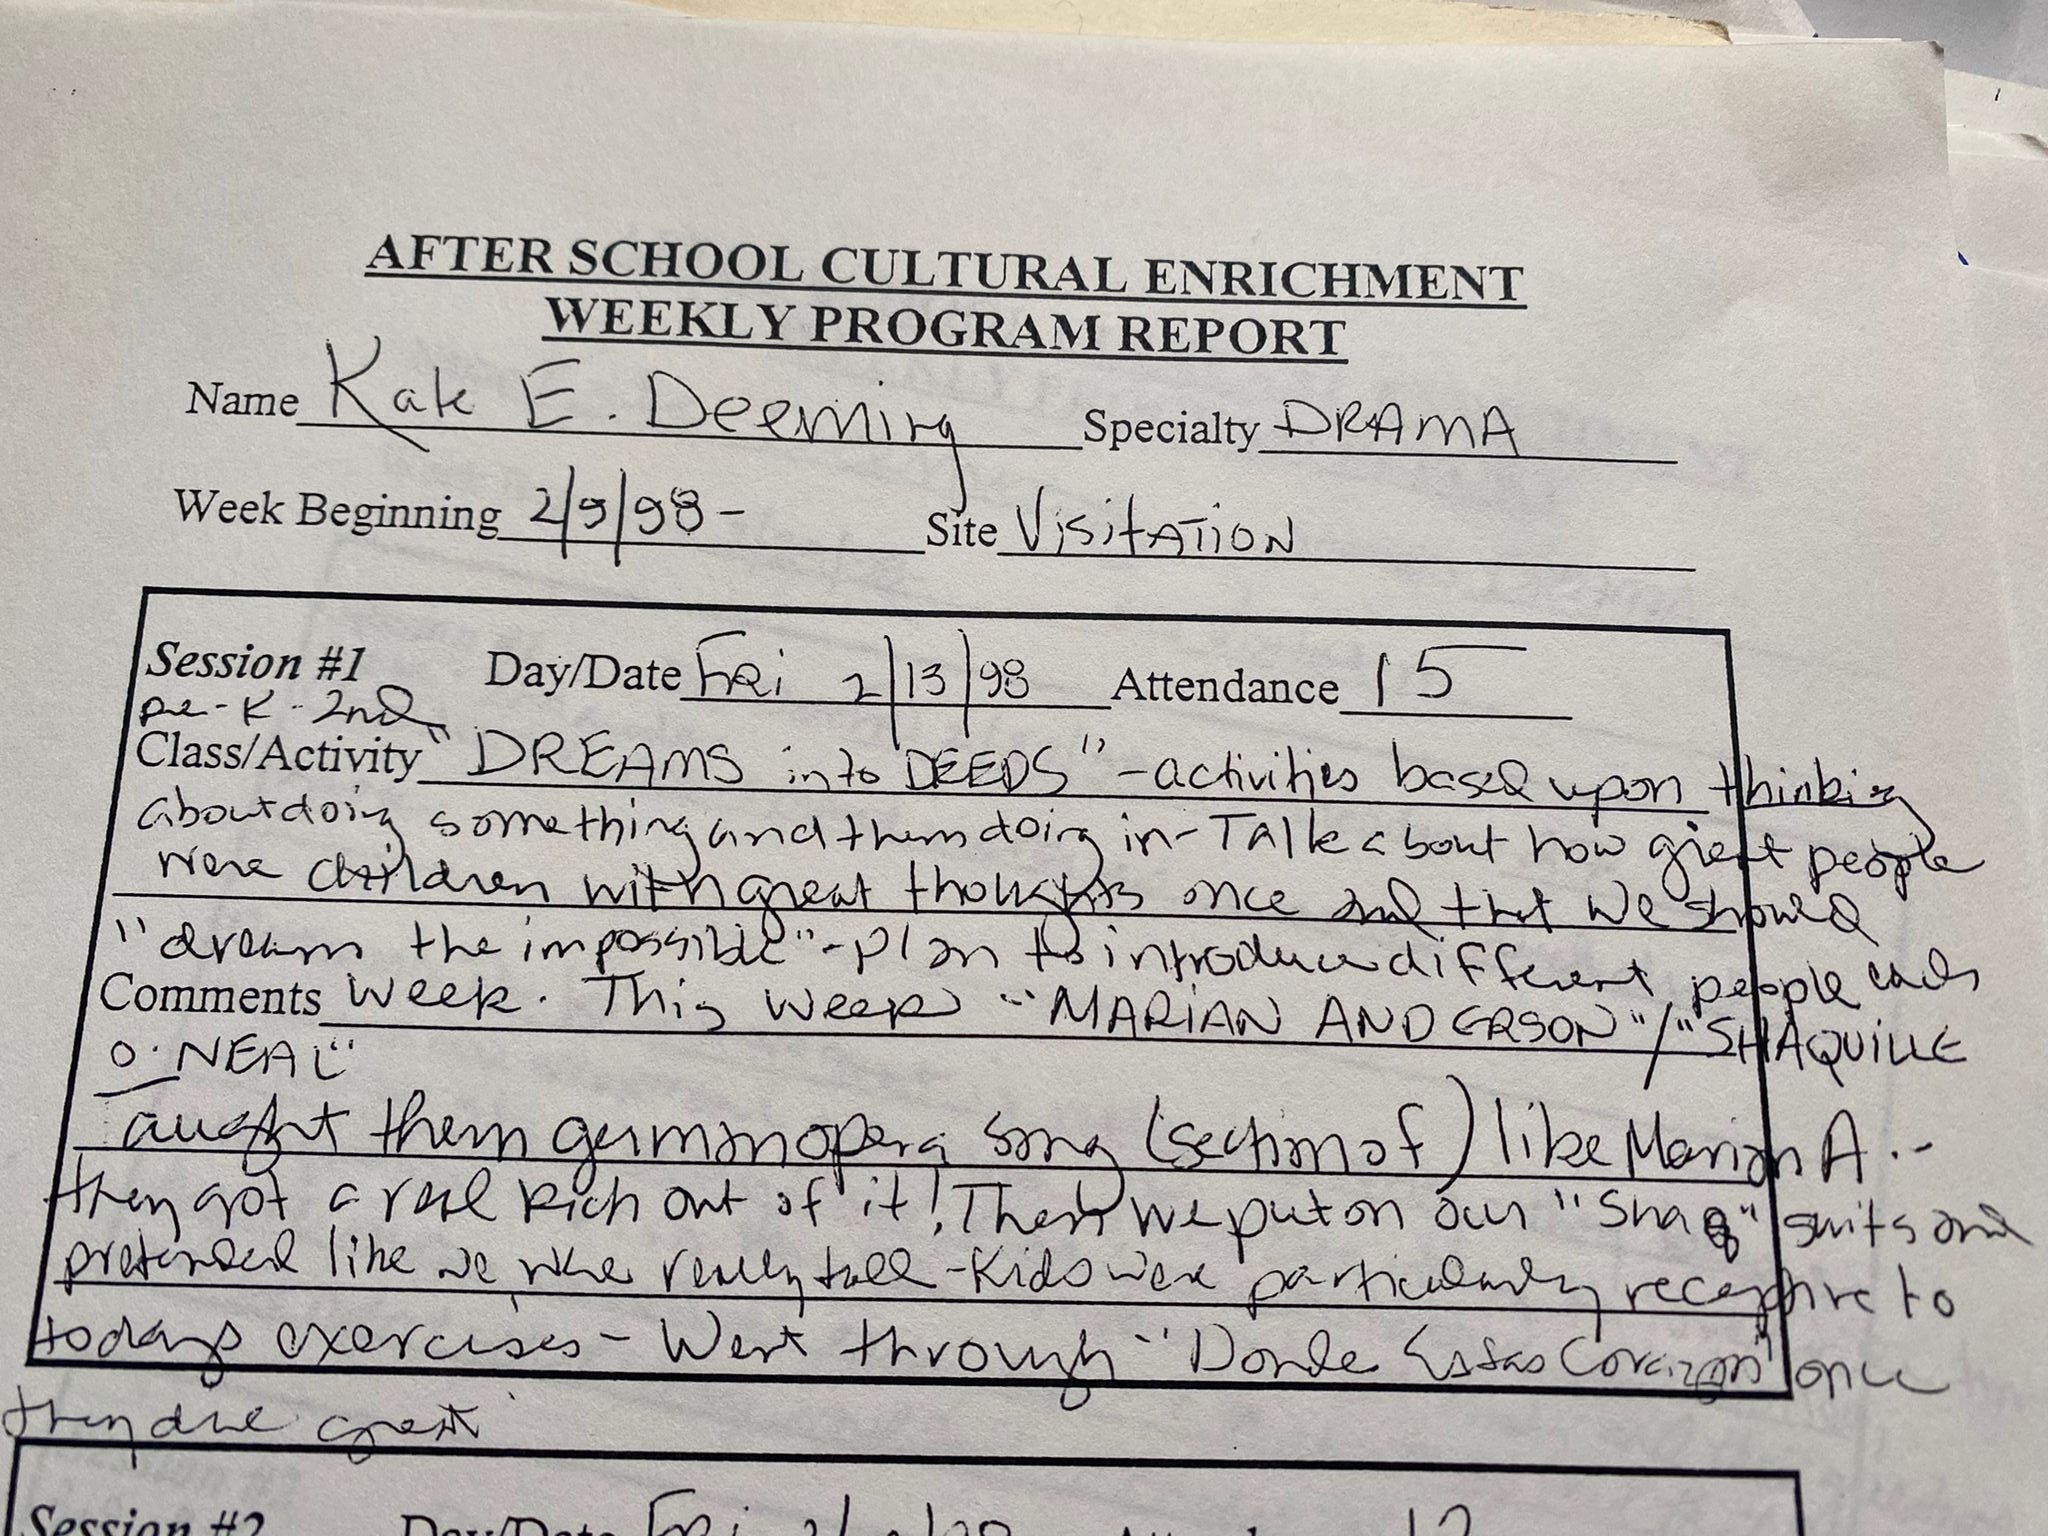 AFTER SCHOOL CULTURAL ENRICHMENT
WEEKLY PROGRAM REPORT
Name Kate E. Deeming Specialty DRAMA
Week Beginning 2/9/98 - Site VISITATION
Session #1 Day/Date Fri 2/13/98 Attendance 15
pre-K-2nd
Class/Activity "DREAMS into DEEDS" - activities based upon thinking
about doing something and them doing in - Talk about how great people
were children with great thoughts once and that we should
"dream the impossible" - plan to introduce different people each
Comments week. This week "MARIAN ANDERSON"/"SHAQUILLE
O'NEAL"
aught them german opera song (section of) like Marian A. -
they got a real kick out of it! Then we put on our "Shaq" suits and
pretended like we were really tall - Kids were particularly receptive to
todays exercises - Went through "Donde Estas Corazon" once
they are great
Session #2 Day/Date Fri 12